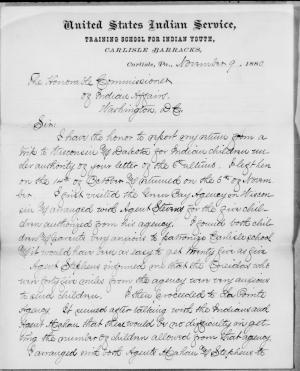 United States Indian Service,
TRAINING SCHOOL FOR INDIAN YOUTH,
CARLISLE BARRACKS,
Carlisle, Pa., November 9, 1880
The Honorable Commissioner
of Indian Affairs,
Washington, D.C.
Sir:
I have the honor to report my return from a
trip to Wisconsin & Dakota for Indian children un-
der authority of your letter of the ultimo. I left here
on the of October & returned on the of Novem
ber. I first visited the Green Bay Agency in Wiscon
sin & arranged with Agent Stephens for the five chil-
dren authorized from his agency. I found both chil-
dren & parents very anxious to patronize Carlisle school
& it would have been as easy to get twenty five as five
Agent Stephens informed me that the Oneidas who
were forty five miles from the agency were very anxious
to send children. I then proceeded to La Pointe
Agency. It proved after talking with the Indians and
Agent Mahan that there would be no difficulty in get-
ting the number of children allowed from that agency.
I arranged with both Agents Mahan & Stephens to